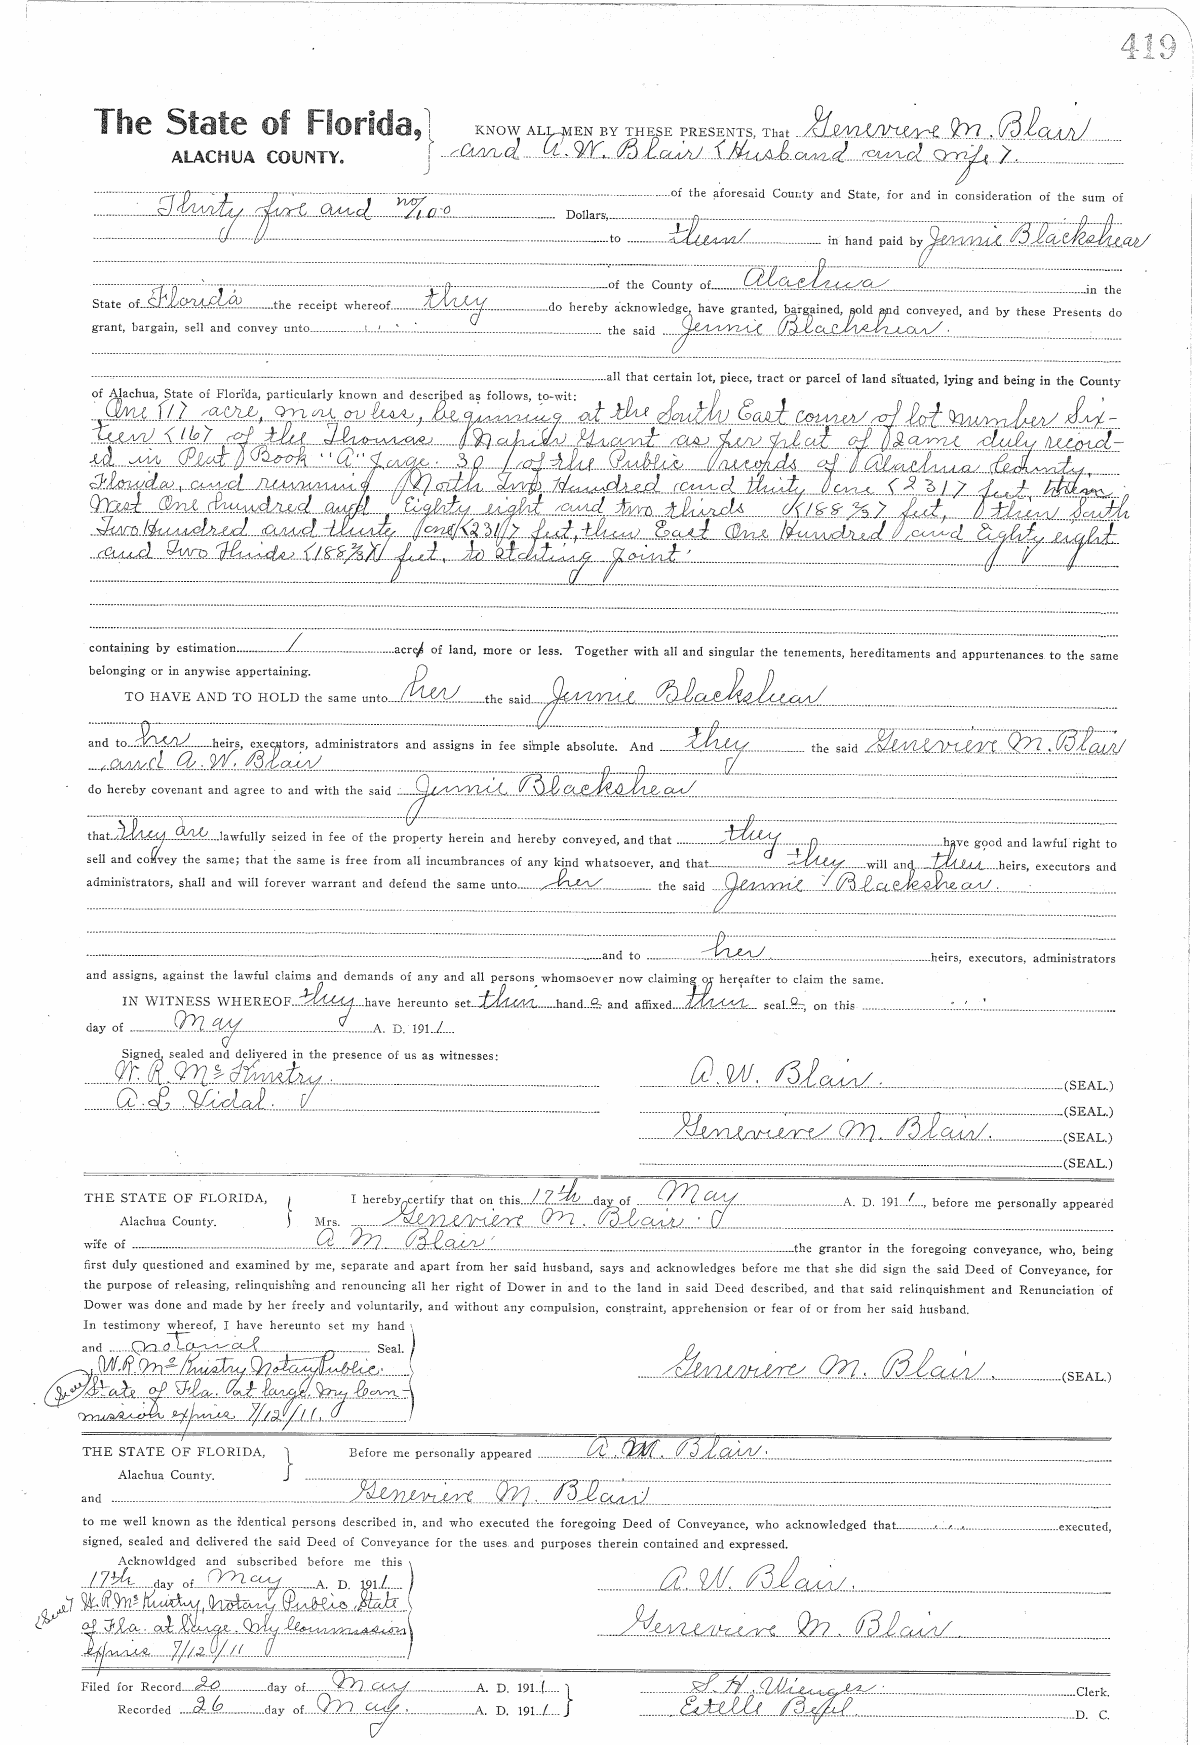 419
The State of Florida,
ALACHUA COUNTY.
KNOW ALL MEN BY THESE PRESENTS, That Genevieve M. Blair
and A. W. Blair (Husband and wife).
of the aforesaid County and State, for and in consideration of the sum of
Thirty five and no/100 Dollars,
to them in hand paid by Jennie Blackshear
of the County of Alachua in the
State of Florida the receipt whereof they do hereby acknowledge, have granted, bargained, sold and conveyed, and by these Presents do
grant, bargain, sell and convey unto the said Jennie Blackshear.
all that certain lot, piece, tract or parcel of land situated, lying and being in the County
of Alachua, State of Florida, particularly known and described as follows, to-wit:
One (1) acre, more or less, beginning at the South East corner of lot number Six-
teen (16) of the Thomas Napier Grant as per plat of same duly record-
ed in Plat Book "A" page 30 of the Public records of Alachua County,
Florida, and running North Two Hundred and thirty one (231) feet, then
West One hundred and Eighty eight and two thirds (188 2/3) feet, then South
Two Hundred and thirty one (231) feet, then East One Hundred and Eighty eight
and Two Thirds (188 2/3) feet, to starting point.
containing by estimation 1 acre of land, more or less. Together with all and singular the tenements, hereditaments and appurtenances to the same
belonging or in anywise appertaining.
TO HAVE AND TO HOLD the same unto her the said Jennie Blackshear
and to her heirs, executors, administrators and assigns in fee simple absolute. And they the said Genevieve M. Blair
and A. W. Blair
do hereby covenant and agree to and with the said Jennie Blackshear
that they are lawfully seized in fee of the property herein and hereby conveyed, and that they have good and lawful right to
sell and convey the same; that the same is free from all incumbrances of any kind whatsoever, and that they will and their heirs, executors and
administrators, shall and will forever warrant and defend the same unto her the said Jennie Blackshear.
and to her heirs, executors, administrators
and assigns, against the lawful claims and demands of any and all persons whomsoever now claiming or hereafter to claim the same.
IN WITNESS WHEREOF they have hereunto set their hand s and affixed their seal s, on this
day of May A. D. 191 1
Signed, sealed and delivered in the presence of us as witnesses:
W. R. McKinstry.
A. L. Vidal.
A. W. Blair. (SEAL.)
(SEAL.)
Genevieve M. Blair. (SEAL.)
(SEAL.)
THE STATE OF FLORIDA,
Alachua County.
I hereby certify that on this 17th day of May A. D. 191 1, before me personally appeared
Mrs. Genevieve M. Blair.
wife of A. M. Blair the grantor in the foregoing conveyance, who, being
first duly questioned and examined by me, separate and apart from her said husband, says and acknowledges before me that she did sign the said Deed of Conveyance, for
the purpose of releasing, relinquishing and renouncing all her right of Dower in and to the land in said Deed described, and that said relinquishment and Renunciation of
Dower was done and made by her freely and voluntarily, and without any compulsion, constraint, apprehension or fear of or from her said husband.
In testimony whereof, I have hereunto set my hand
and notarial Seal.
W. R. McKinstry, Notary Public.
(Seal) State of Fla. at large. My Com-
mission expires 7/12/11.
Genevieve M. Blair. (SEAL.)
THE STATE OF FLORIDA,
Alachua County.
Before me personally appeared A. M. Blair.
and Genevieve M. Blair
to me well known as the identical persons described in, and who executed the foregoing Deed of Conveyance, who acknowledged that executed,
signed, sealed and delivered the said Deed of Conveyance for the uses and purposes therein contained and expressed.
Acknowldged and subscribed before me this
17th day of May A. D. 191 1
(Seal) W. R. McKinstry, Notary Public, State
of Fla. at large. My Commission
expires 7/12/11
A. W. Blair.
Genevieve M. Blair
Filed for Record 20 day of May A. D. 191 1
Recorded 26 day of May. A. D. 191 1
S. H. Wienges. Clerk.
Estelle D. C.